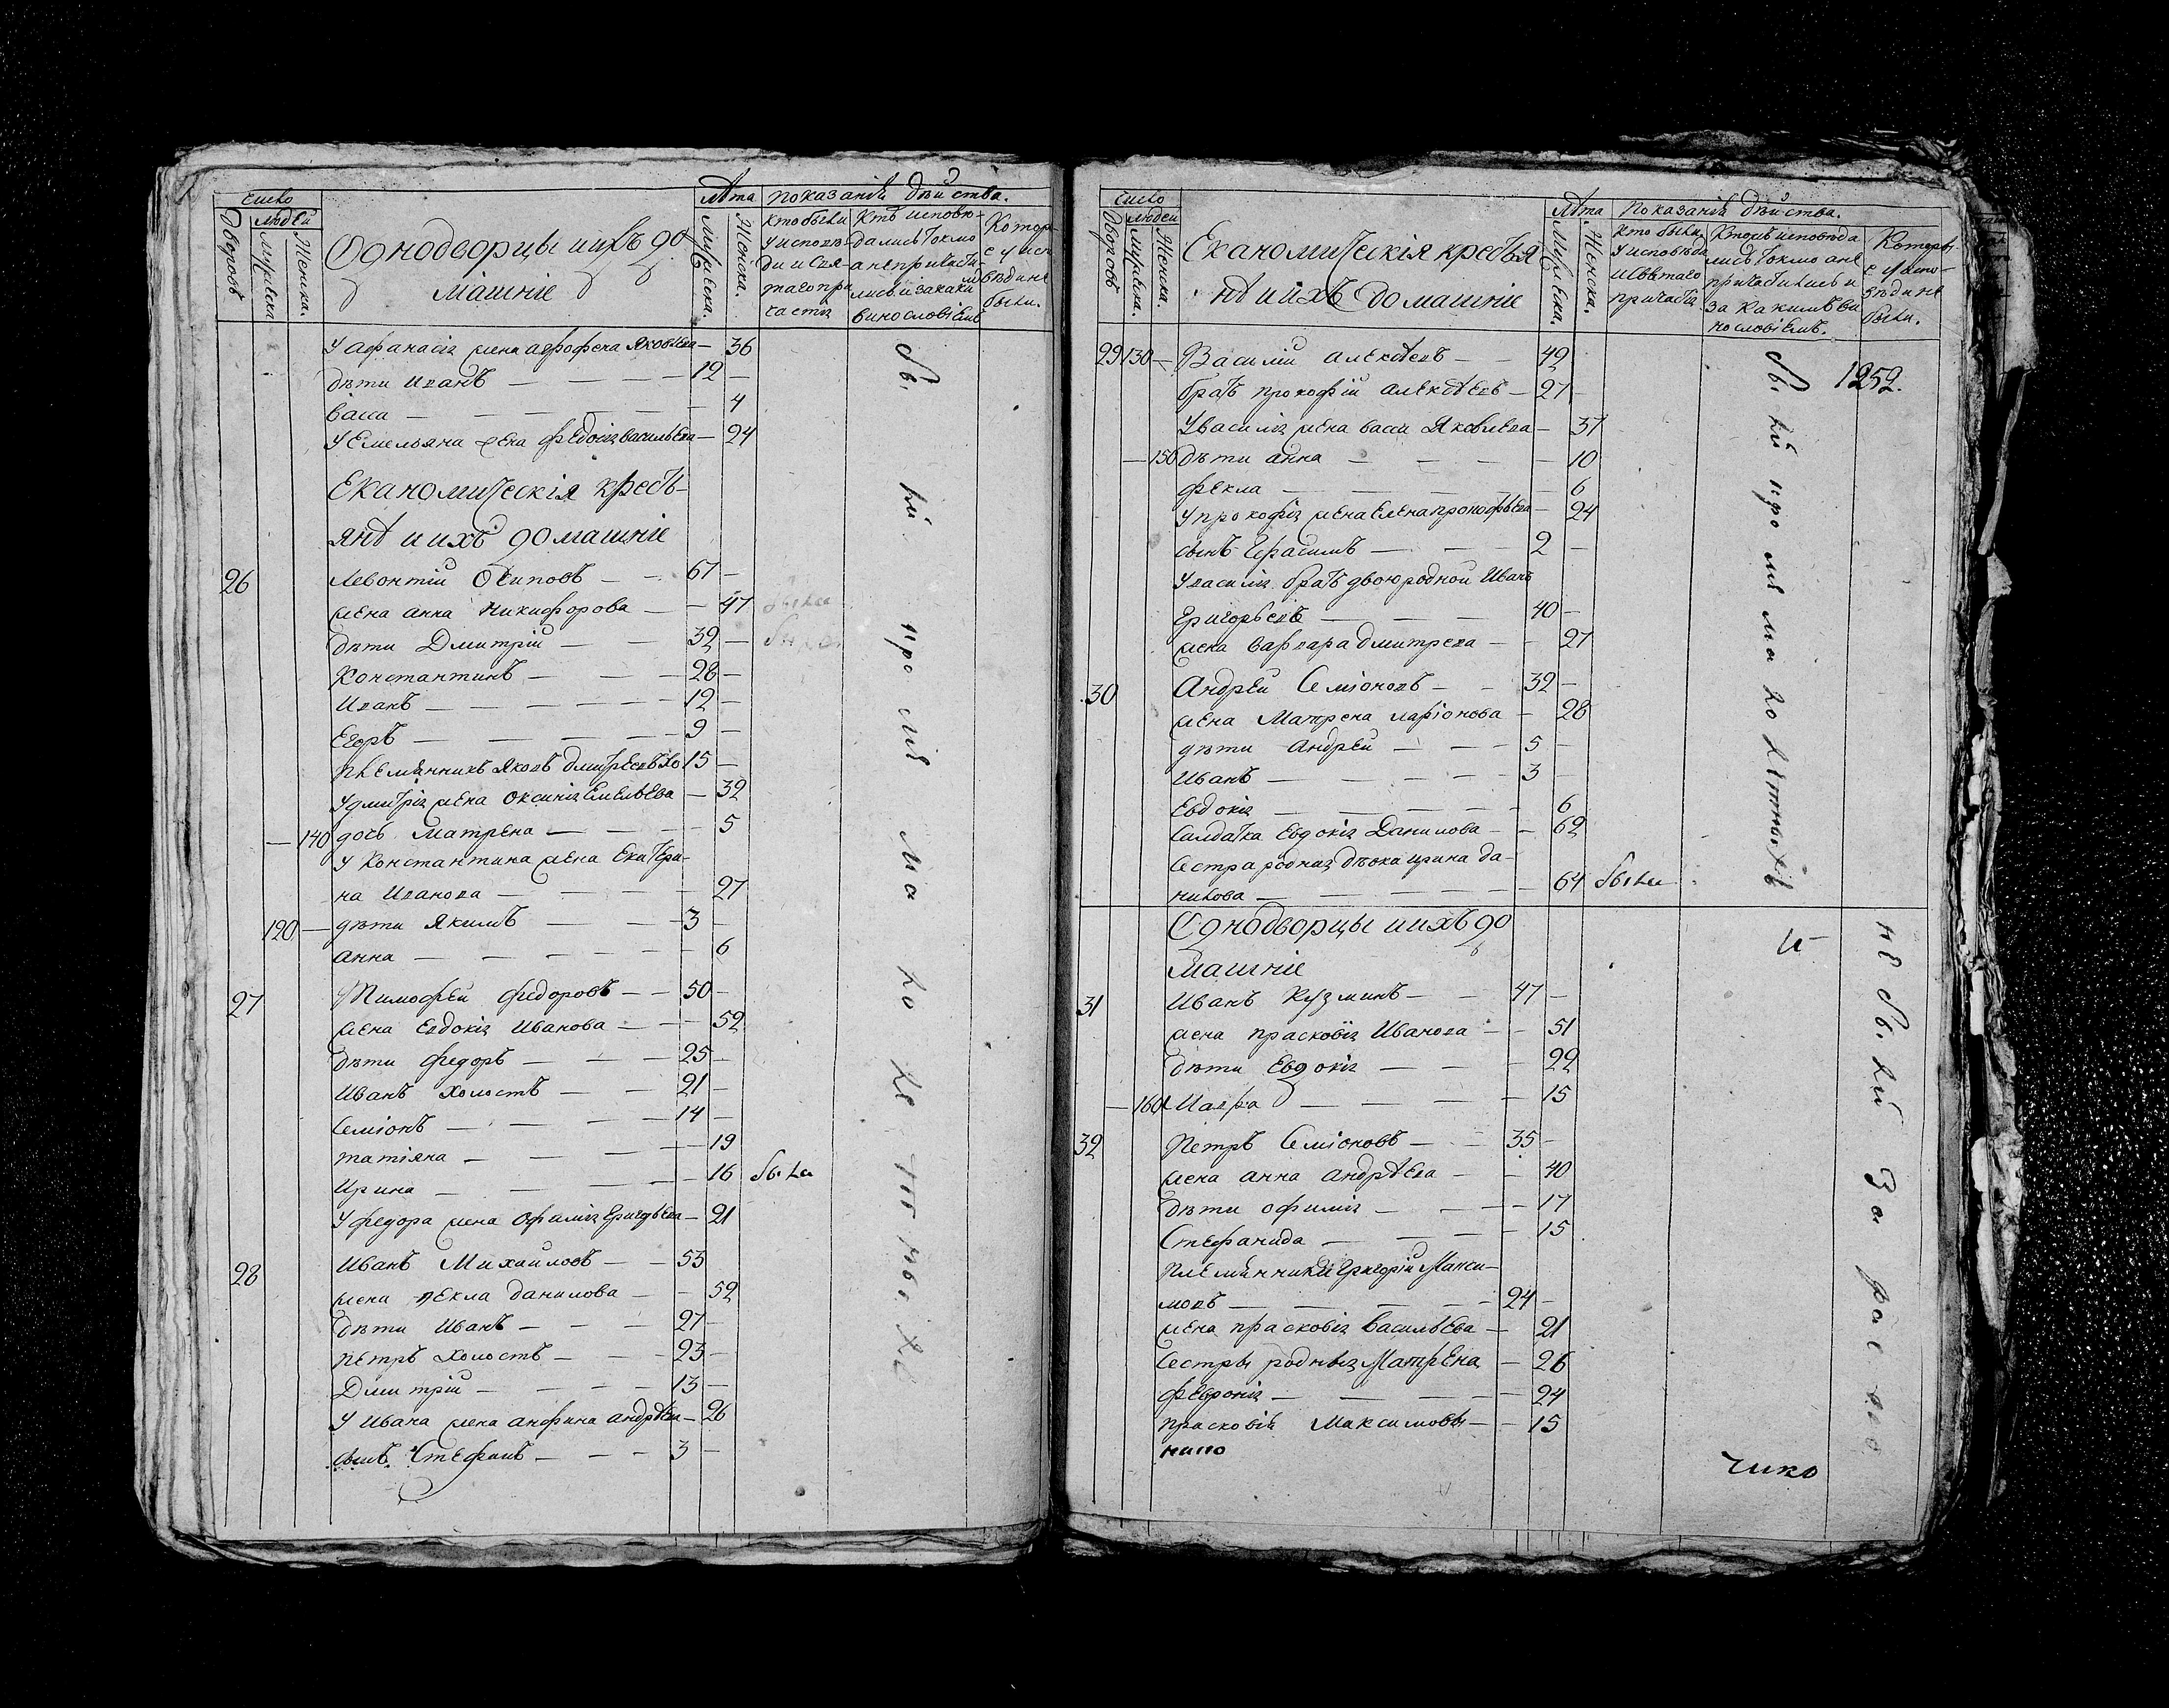 Число
Людей
Дворовъ
Мужеска.
Женска.
Однодворцы и ихъ до
машніе
Лѣта
Мужеска.
Женска.
показаніе действа.
кто были
у исповѣ-
ди и Свя-
таго при
части
Кто исповѣ-
дались токмо
а не причасти-
лись и за каки
винословіемъ
Котор
е у исп
вѣди не
были.
У афанасія жена агрофена Яковлева — 36
дѣти иванъ — 12 —
васса — 4
У Емельяна жена федосія васильева — 24
Еканомическія кресь-
янѣ и ихъ домашніе
26 Левонтий Осиповъ — 67 —
жена анна Никифорова — 47 были
дѣти Дмитрій — 32 —
Константинъ — 28 —
Иванъ — 12 —
Егоръ — 9 —
племянникъ Яковъ дмитреевъ хо 15 —
У дмитрія жена оксинія Емельева — 32
— 140 дочь Матрена — 5
У Константина жена Екатери-
на Иванова — 27
120 — дѣти Якимъ — 3 —
анна — 6
27 Тимофей федоровъ — 50 —
жена Евдокія Иванова — 52
дѣти федоръ — 25 —
Иванъ холостъ — 21 —
Семіонъ — 14 —
татіяна — 19
Ирина — 16 были
У федора жена офимія Григорьева — 21
28 Иванъ Михайловъ — 53
жена фекла данилова — 52
дѣти Иванъ — 27 —
петръ холостъ — 23 —
Дмитрій — 13 —
У Ивана жена анфина андрѣева — 26
сынъ Стефанъ — 3 —
были при ма ло ле тны хъ
Число
Людей
Дворовъ
Мужеска.
Женска.
Еканомическія кресья
нѣ и ихъ домашніе
Лѣта
Мужеска.
Женска.
Показаніе действа.
кто были
у исповѣди
и Святаго
причастія
Ктожъ исповѣда
лись токмо а не
причастились и
за какимъ ви
нословіемъ.
Которы
е у испо-
вѣди не
были.
29 130 — Василий алексѣевъ — 42
1252.
братъ прокофий алексѣевъ — 27 —
У василія жена васса Яковлева — 37
— 150 дѣти анна — 10
фекла — 6
У прокофія жена Елена прокофьева — 24
сынъ Герасимъ — 2 —
У василія братъ двоюродной Иванъ
Григорьевъ — 40 —
жена варвара дмитрева — 27
30 Андрей Семіоновъ — 32 —
жена Матрена ларіонова — 28
дѣти андрей — 5 —
Иванъ — 3 —
Евдокія — 6
Салдатка Евдокія Данилова — 62
Сестра родная дѣвка ирина да-
нилова — 64 были
Однодворцы и ихъ до
машніе
31 Иванъ Кузминъ — 47 —
жена прасковія Иванова — 51
дѣти Евдокія — 22
— 160 Мавра — 15
32 Петръ Семіоновъ — 35 —
жена анна андрѣева — 40
дѣти офимія — 17
Стефанида — 15
племянники Григорій Макси-
мовъ — 24 —
жена прасковія васильева — 21
Сестры родныя Матрена — 26
февронія — 24
прасковія Максимовы — 15